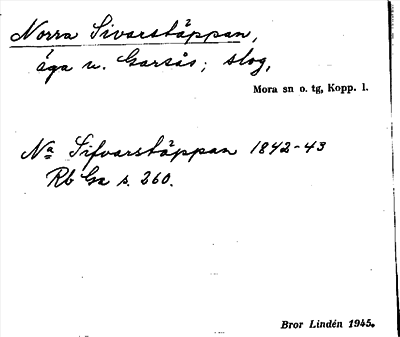 Norra Sivarstäppan,
äga u. Garsås; slog,
Mora sn o. tg, Kopp. l.
Na Sifvarstäppan 1842-43
Rb Ga s. 260.
Bror Lindén 1945.